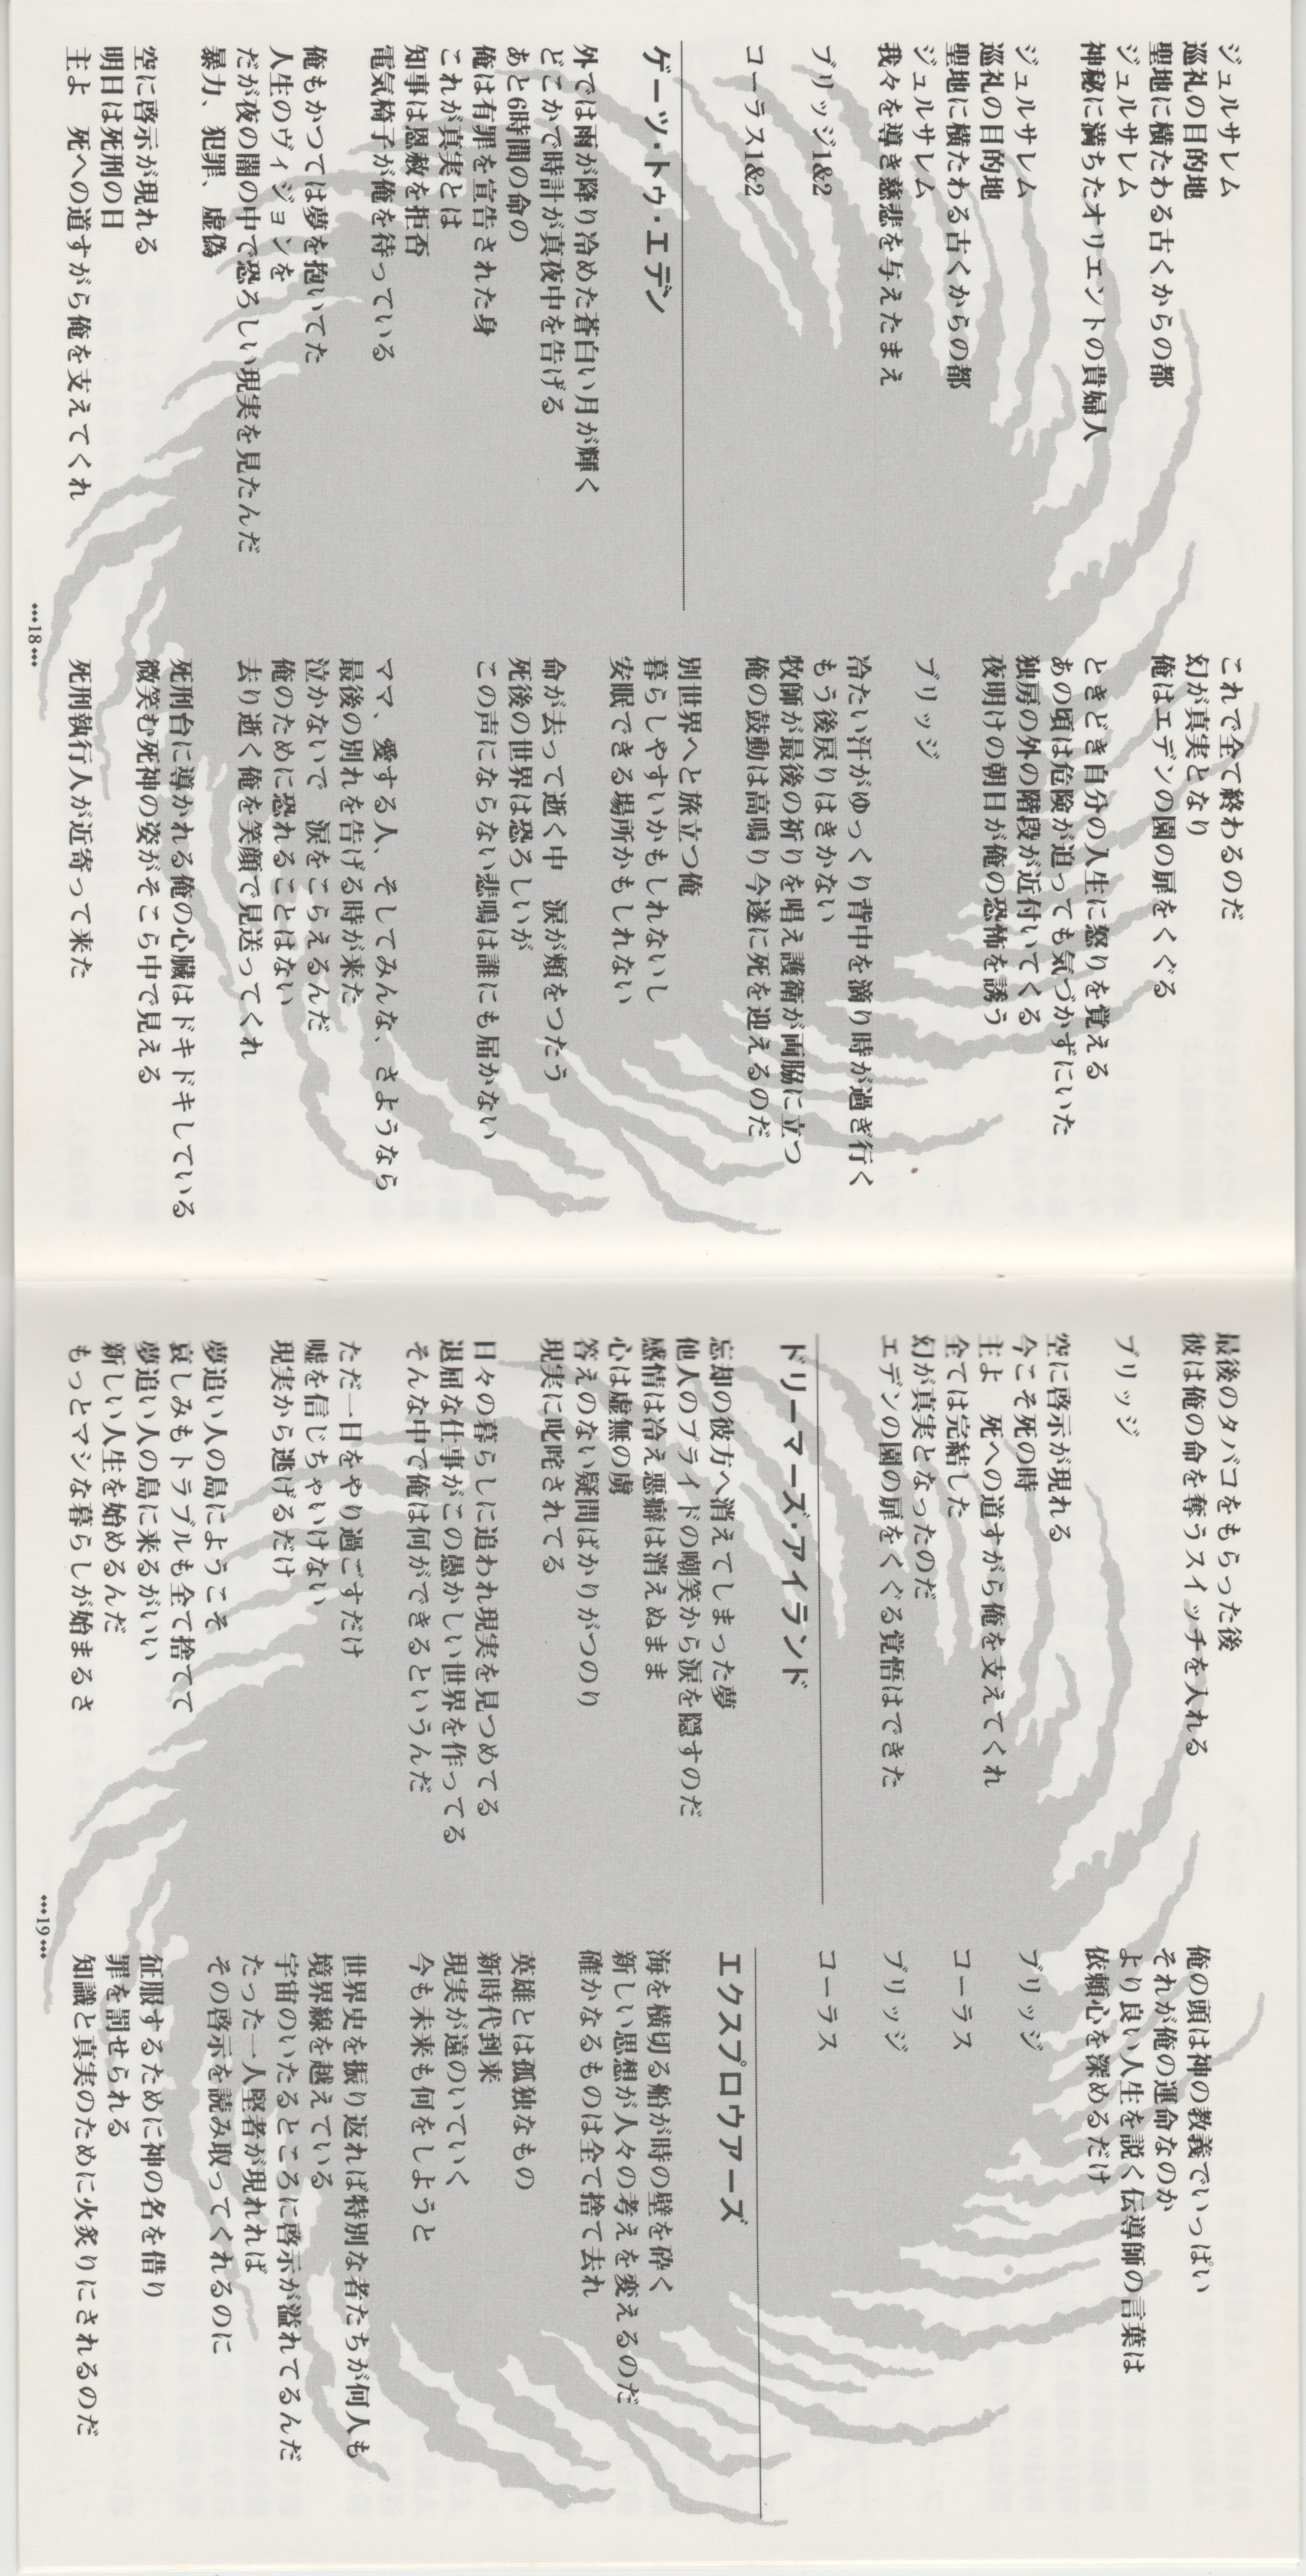 ジュルサレム
巡礼の目的地
聖地に横たわる古くからの都
ジュルサレム
神秘に満ちたオリエントの貴婦人
ジュルサレム
巡礼の目的地
聖地に横たわる古くからの都
ジュルサレム
我々を導き慈悲を与えたまえ
ブリッジ1&2
コーラス1&2
ゲーツ・トゥ・エデン
外では雨が降り冷めた蒼白い月が輝く
どこかで時計が真夜中を告げる
あと6時間の命の
俺は有罪を宣告された身
これが真実とは
知事は恩赦を拒否
電気椅子が俺を待っている
俺もかつては夢を抱いてた
人生のヴィジョンを
だが夜の闇の中で恐ろしい現実を見たんだ
暴力、犯罪、虚偽
空に啓示が現れる
明日は死刑の日
主よ　死への道すがら俺を支えてくれ
これで全て終わるのだ
幻が真実となり
俺はエデンの園の扉をくぐる
ときどき自分の人生に怒りを覚える
あの頃は危険が迫っても気づかずにいた
独房の外の階段が近付いてくる
夜明けの朝日が俺の恐怖を誘う
ブリッジ
冷たい汗がゆっくり背中を滴り時が過ぎ行く
もう後戻りはきかない
牧師が最後の祈りを唱え護衛が両脇に立つ
俺の鼓動は高鳴り今遂に死を迎えるのだ
別世界へと旅立つ俺
暮らしやすいかもしれないし
安眠できる場所かもしれない
命が去って逝く中　涙が頬をつたう
死後の世界は恐ろしいが
この声にならない悲鳴は誰にも届かない
ママ、愛する人、そしてみんな、さようなら
最後の別れを告げる時が来た
泣かないで　涙をこらえるんだ
俺のために恐れることはない
去り逝く俺を笑顔で見送ってくれ
死刑台に導かれる俺の心臓はドキドキしている
微笑む死神の姿がそこら中で見える
死刑執行人が近寄って来た
•••18•••
最後のタバコをもらった後
彼は俺の命を奪うスイッチを入れる
ブリッジ
空に啓示が現れる
今こそ死の時
主よ　死への道すがら俺を支えてくれ
全ては完結した
幻が真実となったのだ
エデンの園の扉をくぐる覚悟はできた
ドリーマーズ・アイランド
忘却の彼方へ消えてしまった夢
他人のプライドの嘲笑から涙を隠すのだ
感情は冷え悪癖は消えぬまま
心は虚無の虜
答えのない疑問ばかりがつのり
現実に叱咤されてる
日々の暮らしに追われ現実を見つめてる
退屈な仕事がこの愚かしい世界を作ってる
そんな中で俺は何ができるというんだ
ただ一日をやり過ごすだけ
嘘を信じちゃいけない
現実から逃げるだけ
夢追い人の島にようこそ
哀しみもトラブルも全て捨てて
夢追い人の島に来るがいい
新しい人生を始めるんだ
もっとマシな暮らしが始まるさ
俺の頭は神の教義でいっぱい
それが俺の運命なのか
より良い人生を説く伝導師の言葉は
依頼心を深めるだけ
ブリッジ
コーラス
ブリッジ
コーラス
エクスプロウアーズ
海を横切る船が時の壁を砕く
新しい思想が人々の考えを変えるのだ
確かなるものは全て捨て去れ
英雄とは孤独なもの
新時代到来
現実が遠のいていく
今も未来も何をしようと
世界史を振り返れば特別な者たちが何人も
境界線を越えている
宇宙のいたるところに啓示が溢れてるんだ
たった一人堅者が現れれば
その啓示を読み取ってくれるのに
征服するために神の名を借り
罪を罰せられる
知識と真実のために火炙りにされるのだ
•••19•••